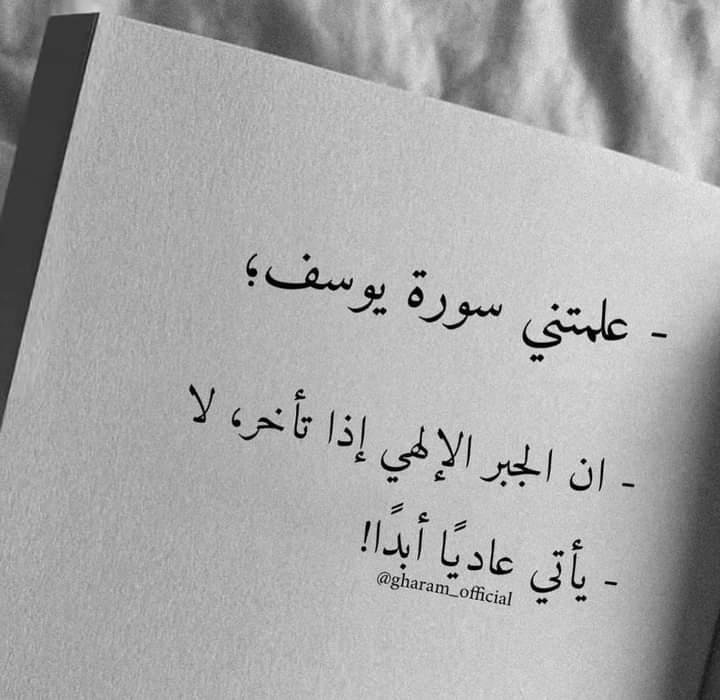 - علمتني سورة يوسف؛
- ان الجبر الإلهي إذا تأخر، لا
- يأتي عاديًا أبدًا!
@gharam_official